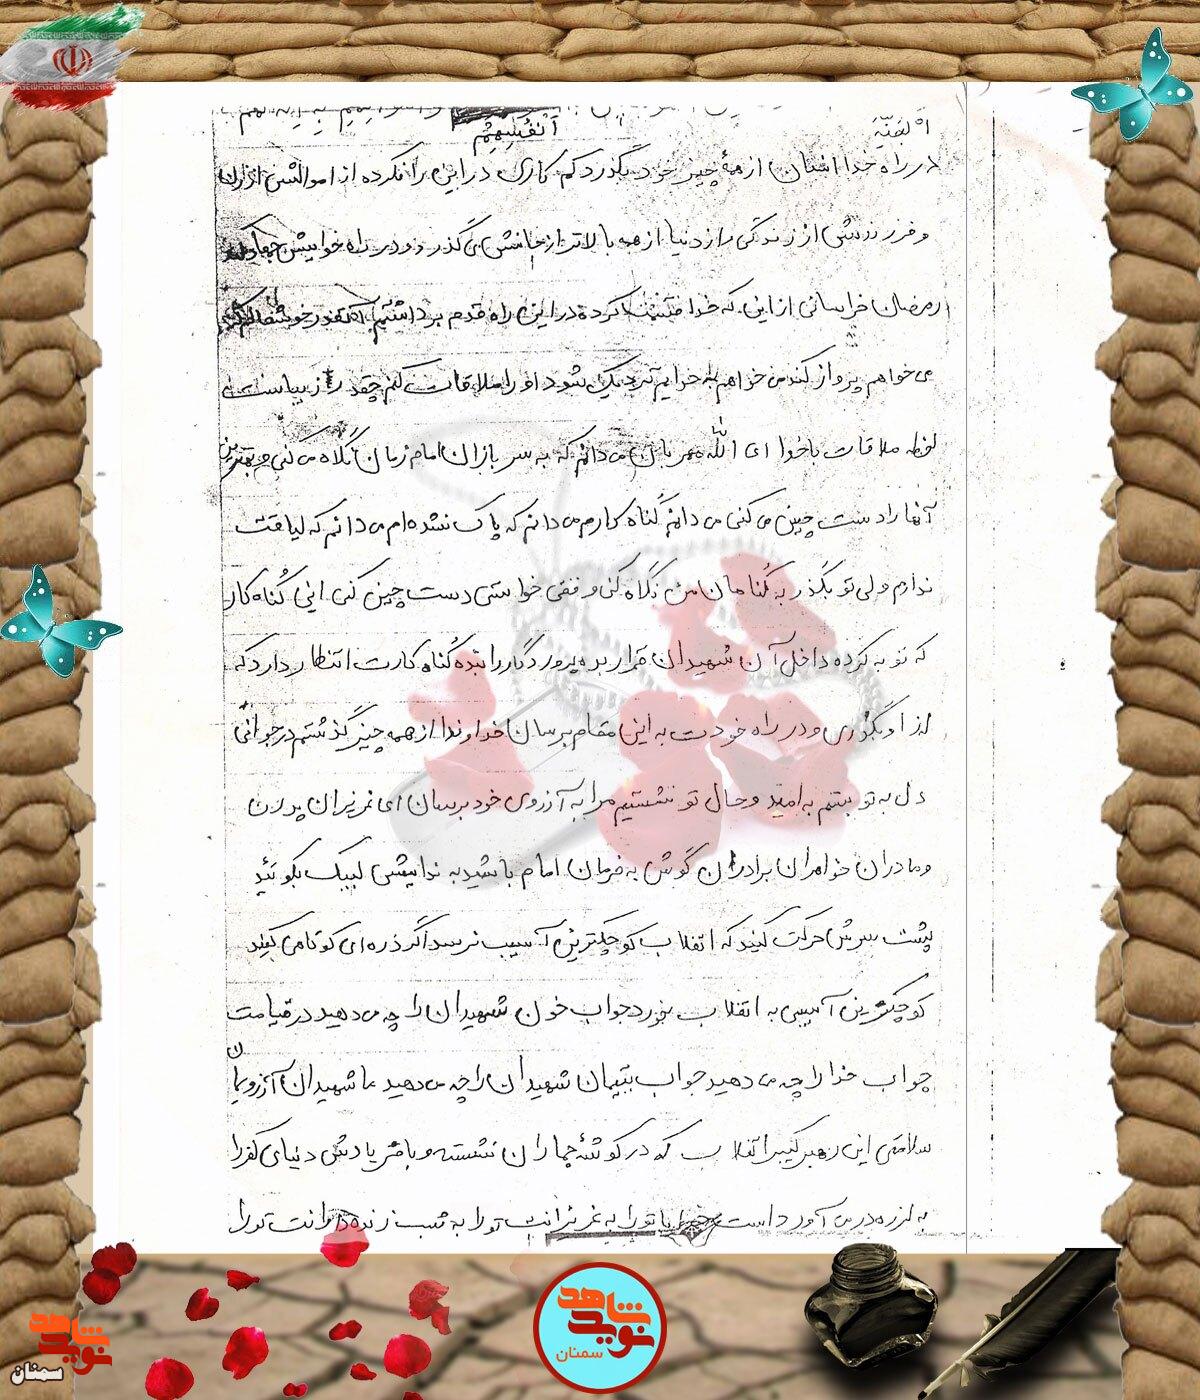 الجَنَّةِ
اَنْفُسِهِمْ
در راه خدا انسان از همهٔ چیز خود بگذرد کم کاری در این راه نکرده از اموالش از زن
و فرزندش از زندگی راز دنیا از همه بالاتر از جانش می گذرد و در راه خدا
رمضان خراسانی از این که خدا منت کرده در این راه قدم برداشتیم آنقدر خوشحالم
می خواهم پرواز کنم می خواهم به خدایم نزدیک شود او را ملاقات کنم چقدر زیباست
لحظه ملاقات با خدا ای الله مهربان می دانم که به سربازان امام زمان نگاه می کنی و بهترین
آنها را دست چین می کنی می دانم گناه کارم می دانم که پاک نشده ام می دانم که لیاقت
ندارم ولی تو بگذر به گناهان من نگاه کن وقتی خواستی دست چین کنی این گناه کار
که توبه کرده داخل آن شهیدان قرار بده پروردگارا بنده گناه کارت انتظار دارد که
از او بگذری و در راه خودت به این مقام برسان خداوندا از همه چیز گذشتم در جوانی
دل به تو بستم به امید وحال تو نشستیم مرا به آرزوی خود برسان ای عزیزان پدران
و مادران خواهران برادران گوش به فرمان امام باشید به ندایش لبیک بگوئید
پشت سرش حرکت کنید که انقلاب کوچکترین آسیب نرسد اگر ذره ای کوتاهی کنید
کوچکترین آسیبی به انقلاب بخورد جواب خون شهیدان را چه می دهید در قیامت
جواب خدا را چه می دهید جواب یتیمان شهیدان را چه می دهید ما شهیدان آرزویمان
سلامتی این رهبر کبیر انقلاب که در گوشهٔ جماران نشسته و با فریادش دنیای کفر را
به لرزه در می آورد است خدایا تو را به عزیزانت تو را به شب زنده دارانت تو را
نوید شاهد
سمنان
نوید شاهد
سمنان